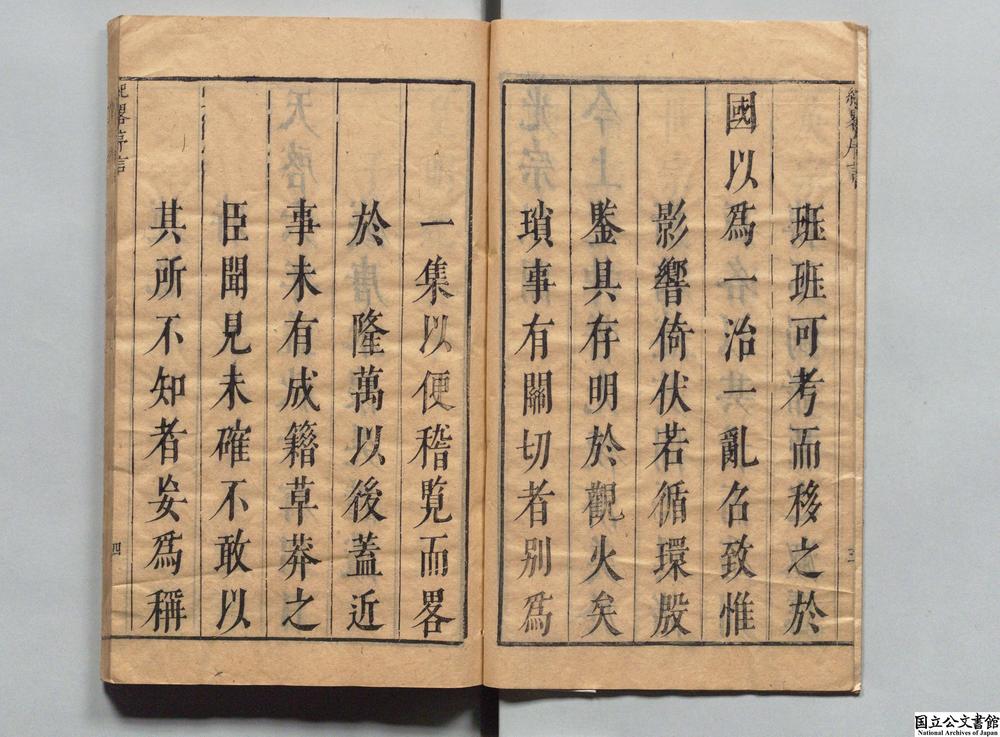 班班可考而移之於
國以爲一治一亂名致惟
影響倚伏若循環殷
鍳具存明於觀火矣
瑣事有關切者別爲
一集以便稽覧而畧
於隆萬以後蓋近
事未有成籍草莽之
臣聞見未確不敢以
其所不知者妄爲稱
四
国立公文書館
National Archives of Japan